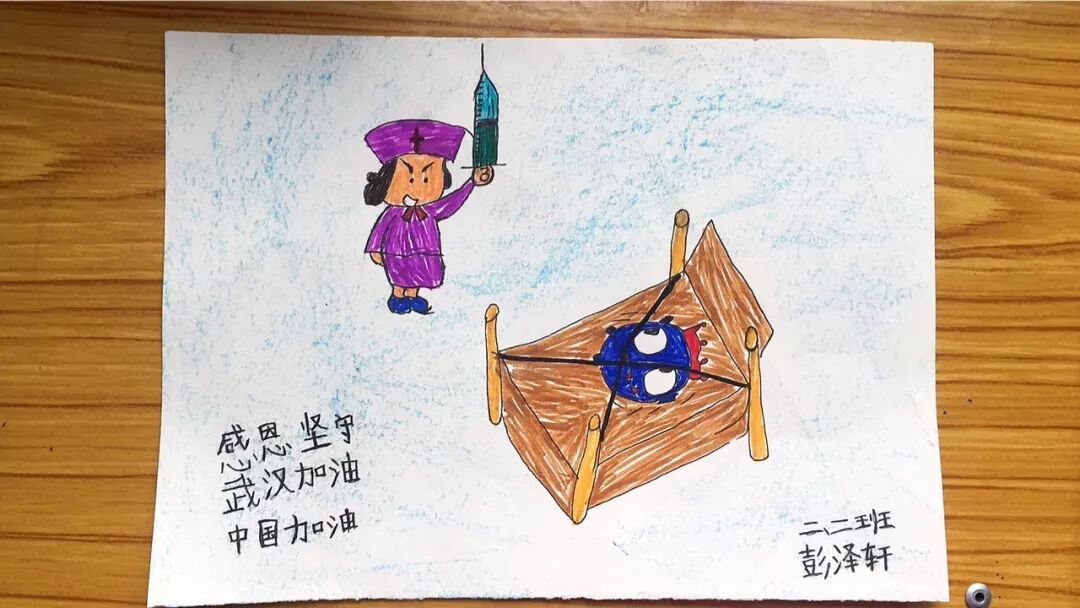 感恩坚守
武汉加油
中国加油
二、二班
彭泽轩